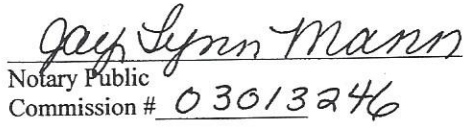 Jay Lynn Mann
Notary Public
Commission # 03013246